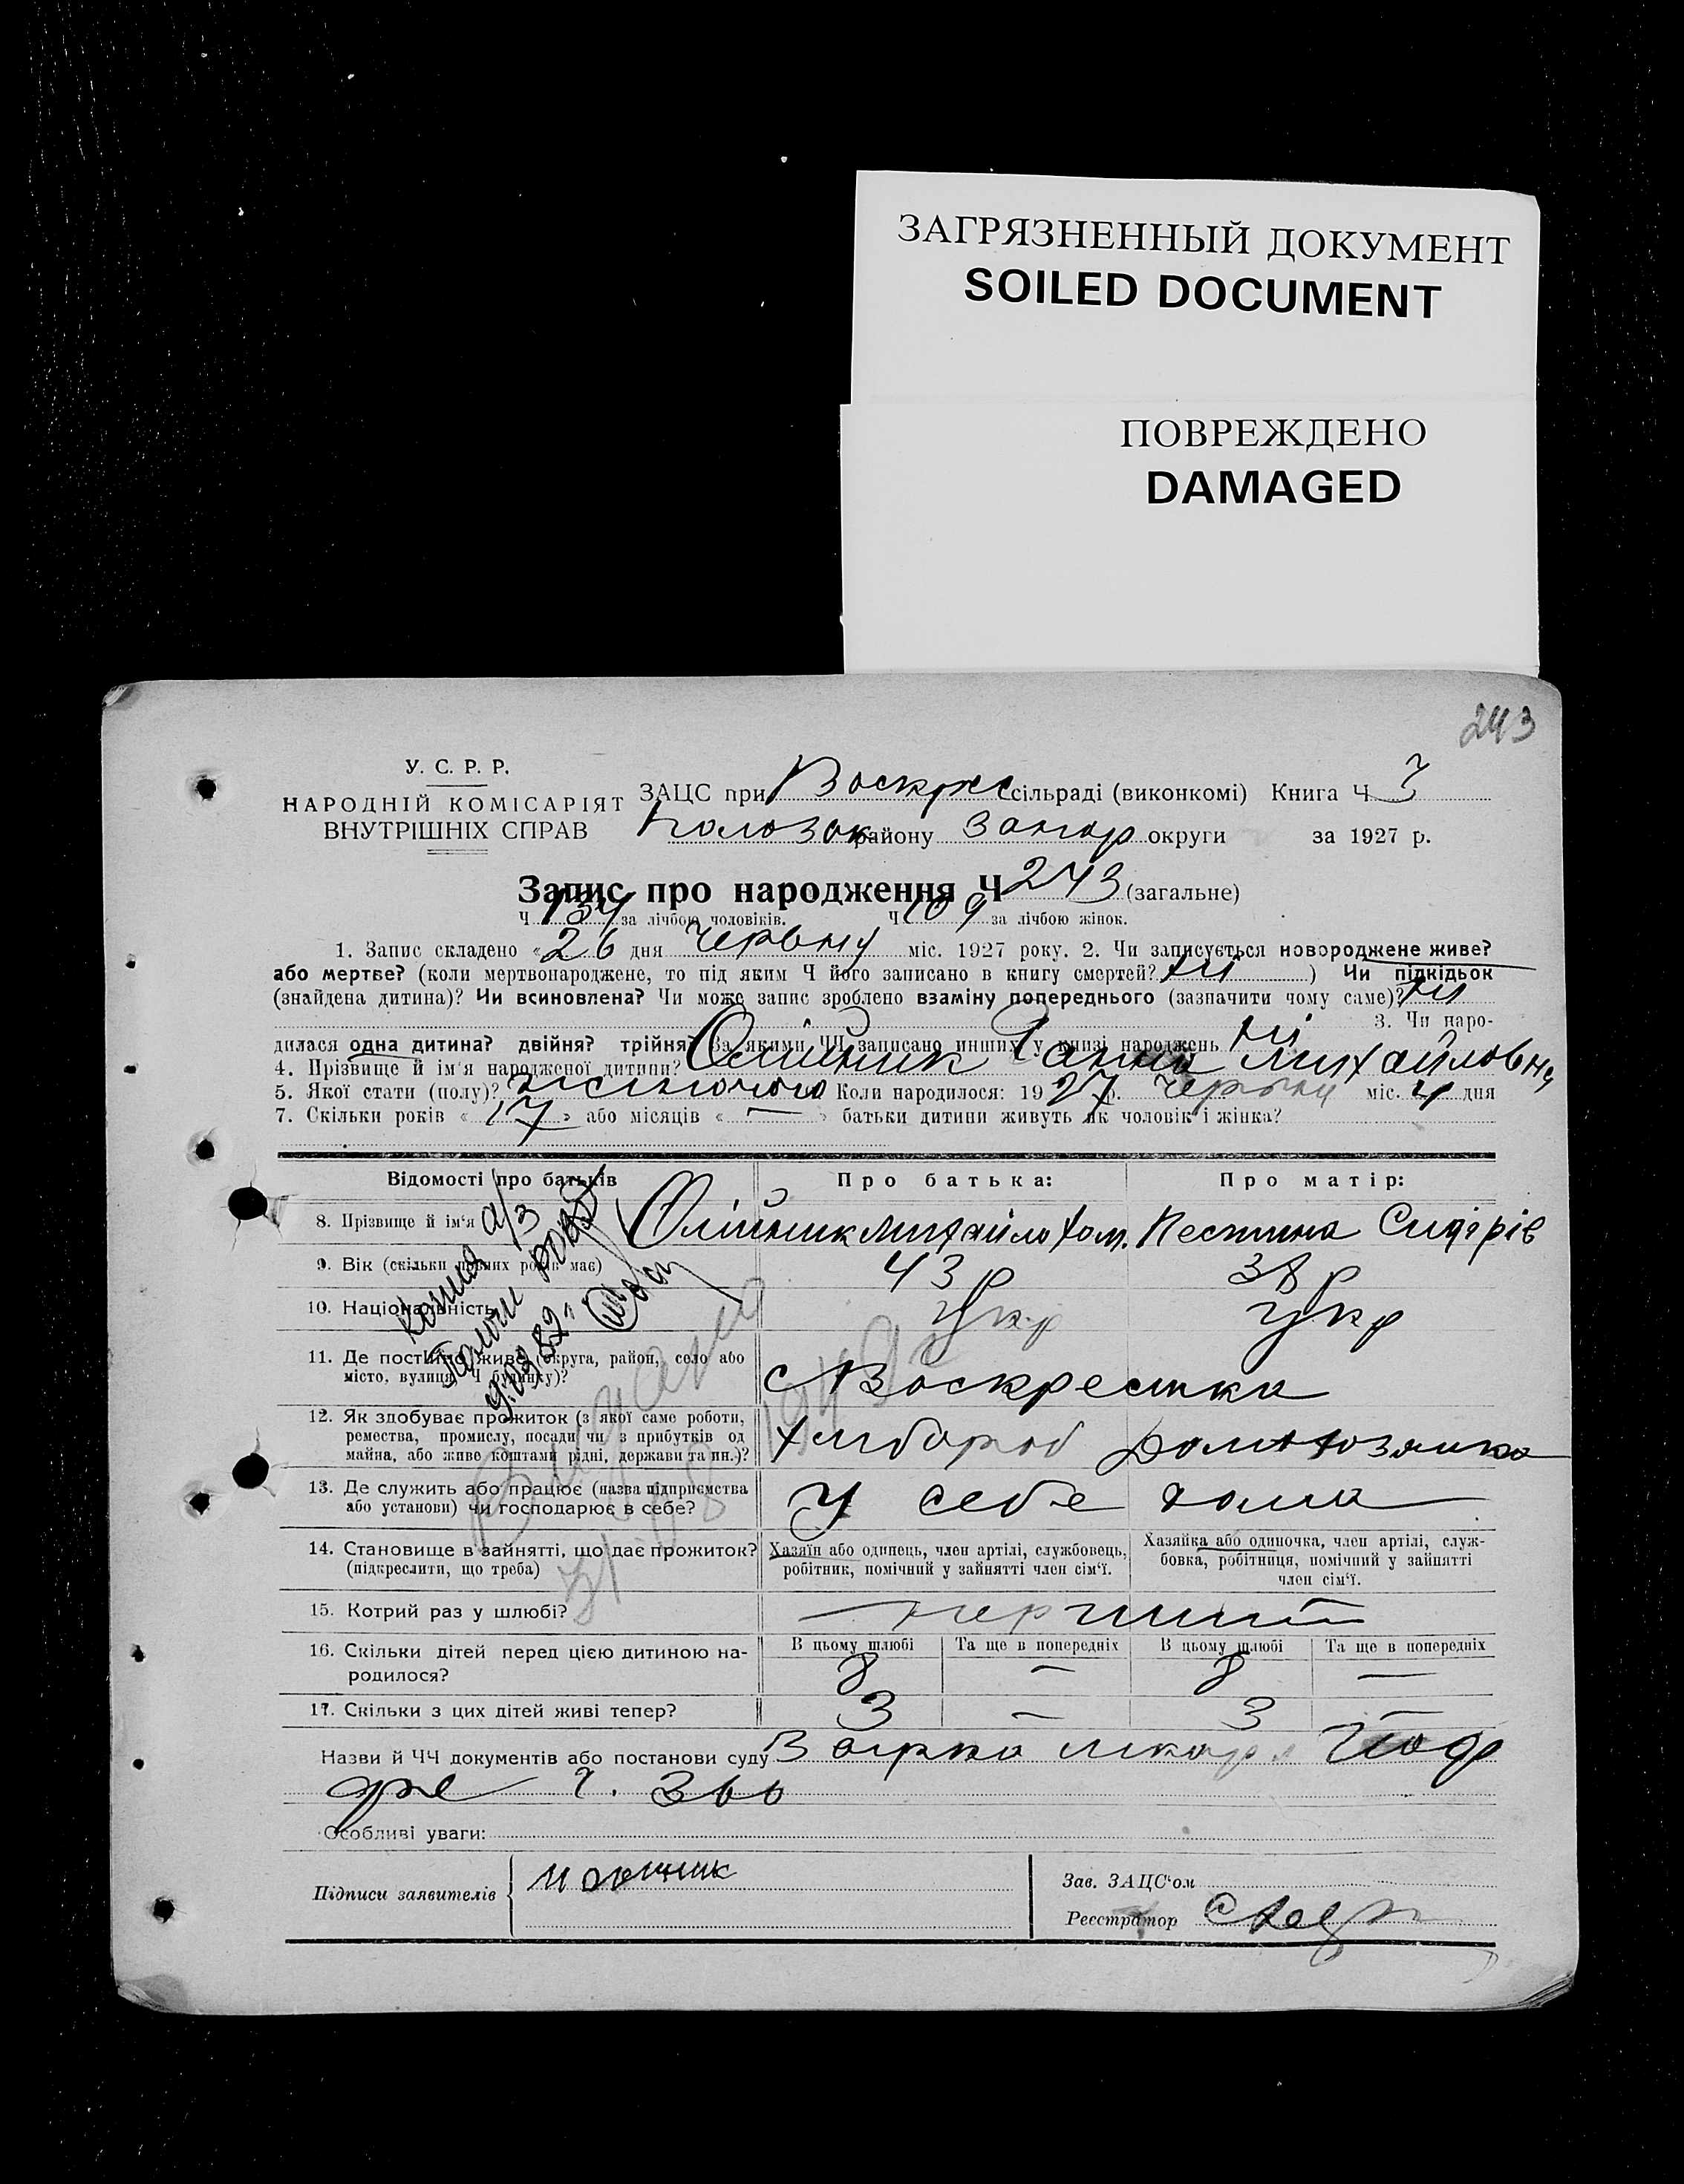 ЗАГРЯЗНЕННЫЙ ДОКУМЕНТ
SOILED DOCUMENT
ПОВРЕЖДЕНО
DAMAGED
243
У. С. Р. Р.
НАРОДНІЙ КОМІСАРІЯТ
ВНУТРІШНІХ СПРАВ
ЗАЦС при Воскрес сільраді (виконкомі) Книга Ч 3
району Запор округи за 1927 р.
Запис про народження Ч 243 (загальне)
Ч 134 за лічбою чоловіків. Ч 109 за лічбою жінок.
1. Запис складено «26 дня Червня міс. 1927 року. 2. Чи записується новороджене живе?
або мертве? (коли мертвонароджене, то під яким Ч його записано в книгу смертей? ні ) Чи підкідьок
(знайдена дитина)? Чи всиновлена? Чи може запис зроблено взаміну попереднього (зазначити чому саме)? ні
3. Чи наро-
дилася одна дитина? двійня? трійня? За якими ЧЧ записано инших у книзі народжень ні
4. Прізвище й ім'я народженої дитини? Олійник Ганна Михайловна
5. Якої стати (полу)? жіночого Коли народилося: 1927 р. Червня міс. 4 дня
7. Скільки років «17» або місяців «—» батьки дитини живуть як чоловік і жінка?
Відомості про батьків
Про батька:
Про матір:
8. Прізвище й ім'я
Олійник Михайло Хом.
Пестина Сидорів
9. Вік (скільки повних років має)
43 р
38 р
10. Національність
Укр
Укр
11. Де постійно живе (округа, район, село або
місто, вулиця, Ч будинку)?
с Воскресенка
12. Як здобуває прожиток (з якої саме роботи,
ремества, промислу, посади чи з прибутків од
майна, або живе коштами рідні, держави та ин.)?
Хлібороб
Домохозяйка
13. Де служить або працює (назва підприємства
або установи) чи господарює в себе?
У себе дома
14. Становище в зайнятті, що дає прожиток?
(підкреслити, що треба)
Хазяїн або одинець, член артілі, службовець,
робітник, помічний у зайнятті член сім'ї.
Хазяйка або одиночка, член артілі, служ-
бовка, робітниця, помічний у зайнятті
член сім'ї.
15. Котрий раз у шлюбі?
перший
16. Скільки дітей перед цією дитиною на-
родилося?
В цьому шлюбі
Та ще в попередніх
В цьому шлюбі
Та ще в попередніх
8 — 8 —
17. Скільки з цих дітей живі тепер?
3 — 3 —
Назви й ЧЧ документів або постанови суду
ч. 366
Особливі уваги:
Підписи заявителів
М Олійник
Зав. ЗАЦС'ом
Реєстратор